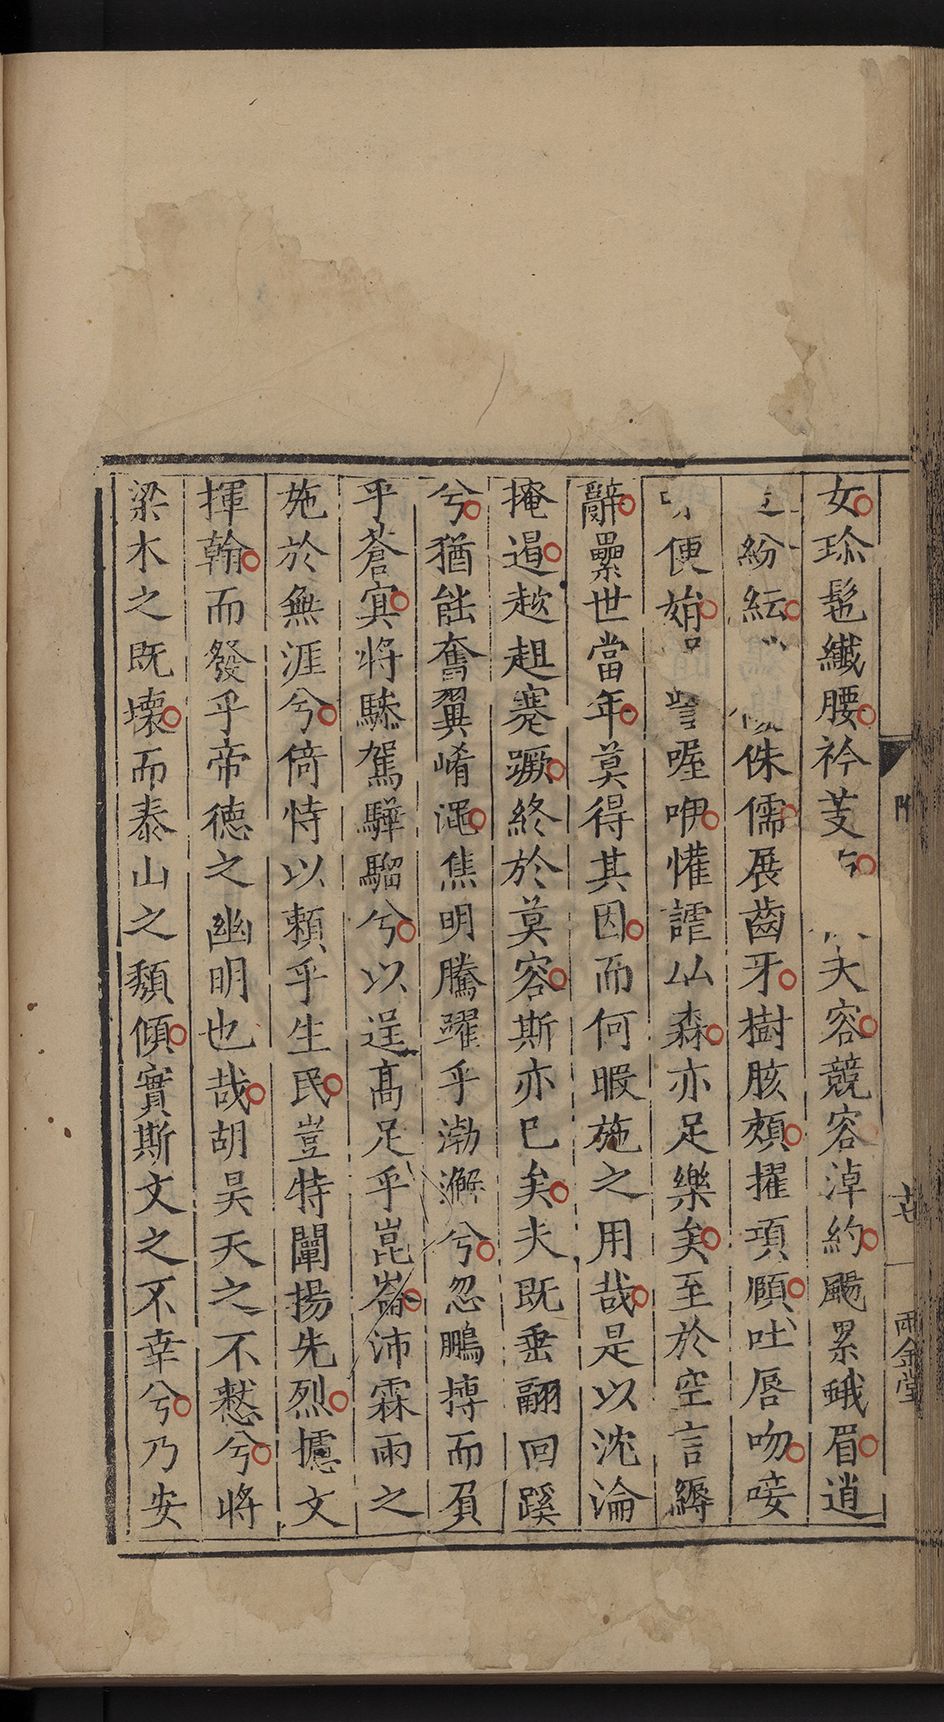 女珎髢纖腰衿芰大容競容淖約颺累蛾眉逍
紛紜侏儒展齒牙樹胲頰擢項頤吐唇吻唼
便娟訾喔咿懽謔仙森亦足樂矣至於空言縟
辭纍世當年莫得其因而何暇施之用哉是以沈淪
掩遏趑趄蹇蹶終於莫容斯亦已矣夫既垂翮回蹊
兮猶能奮翼崤澠焦明騰躍乎渤澥兮忽鵬摶而負
乎蒼寞將驂駕驊騮兮以逞高足乎崑崙沛霖雨之
施於無涯兮倚恃以賴乎生民豈特闡揚先烈攄文
揮翰而發乎帝德之幽明也哉胡昊天之不憗兮將
梁木之既壞而泰山之頹傾實斯文之不幸兮乃安
雨金堂